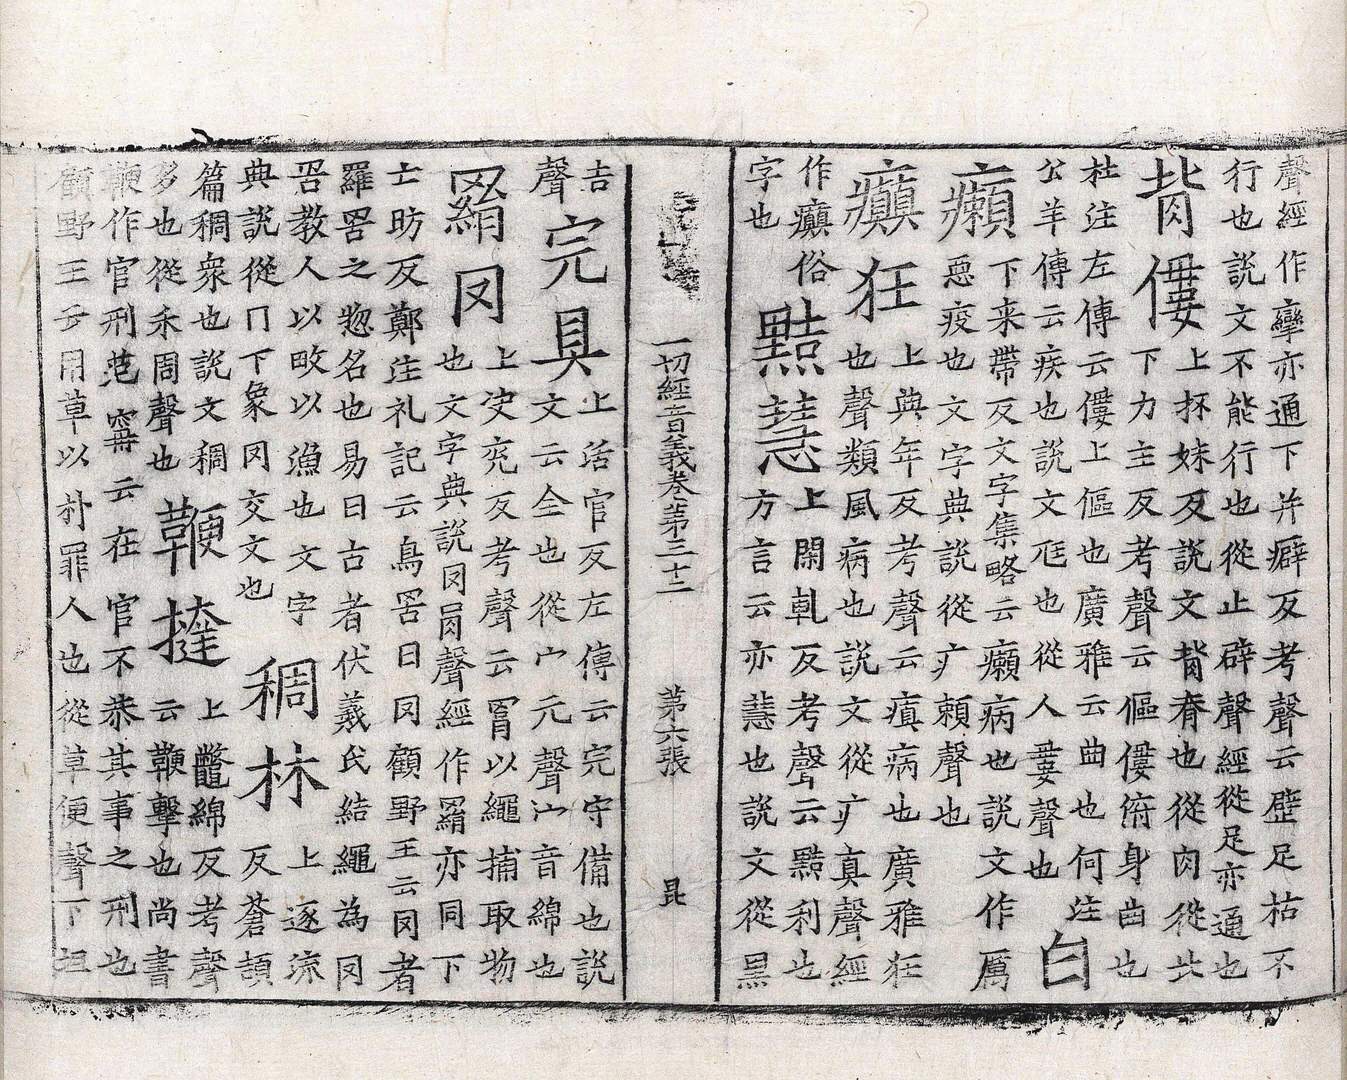 聲經作孿亦通下并癖反考聲云躄足枯不
行也說文不能行也從止辟聲經從足亦通也
背僂
上抔妹反說文背脊也從肉從北
下力主反考聲云傴僂俯身曲也
杜注左傳云僂上傴也廣雅云曲也何注
公羊傳云疾也說文尫也從人婁聲也
白
癩
下来帶反文字集略云癩病也說文作厲
惡疫也文字典說從疒頼聲也
癲狂
上典年反考聲云瘨病也廣雅狂
也聲類風病也說文從疒真聲經
作癲俗
字也
黠慧
上閑軋反考聲云黠利也
方言云亦慧也說文從黑
一切經音義卷第三十二
第六張
昆
吉
聲
完具
上活官反左傳云完守備也說
文云全也從宀元聲宀音綿也
羂罔
上决兖反考聲云罥以繩捕取物
也文字典說罔肙聲經作羂亦同下
亡昉反鄭注礼記云鳥罟曰罔顧野王云罔者
羅罟之惣名也易曰古者伏羲氏結繩為罔
罟教人以畋以漁也文字
典說從冂下象罔交文也
稠林
上逐流
反蒼頡
篇稠衆也說文稠
多也從禾周聲也
鞭撻
上鼈綿反考聲
云鞭擊也尚書
鞭作官刑范甯云在官不恭其事之刑也
顧野王云用革以朴罪人也從革便聲下坦